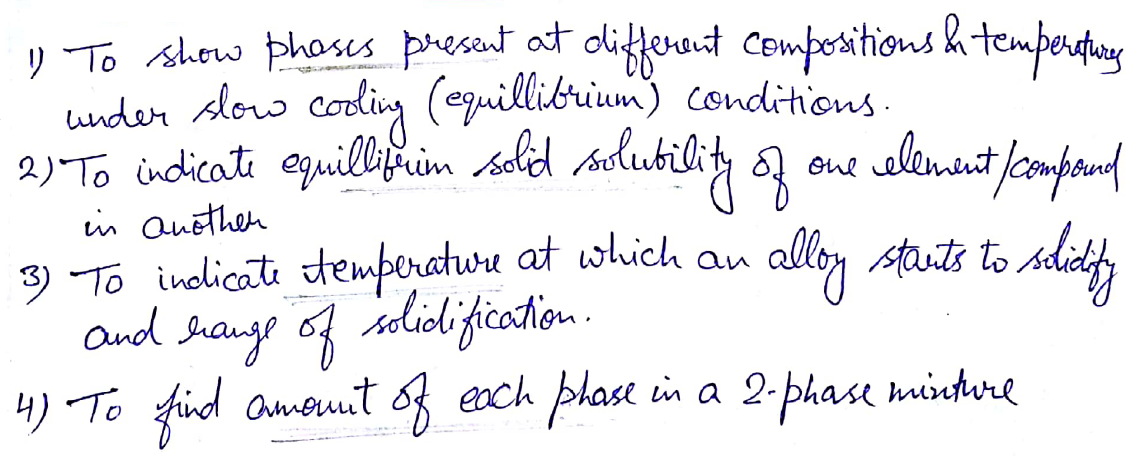 1) To show phases present at different compositions & temperatures
under slow cooling (equillibrium) conditions.
2) To indicate equillibrium solid solubility of one element/compound
in another
3) To indicate temperature at which an alloy starts to solidify
and range of solidification.
4) To find amount of each phase in a 2-phase mixture